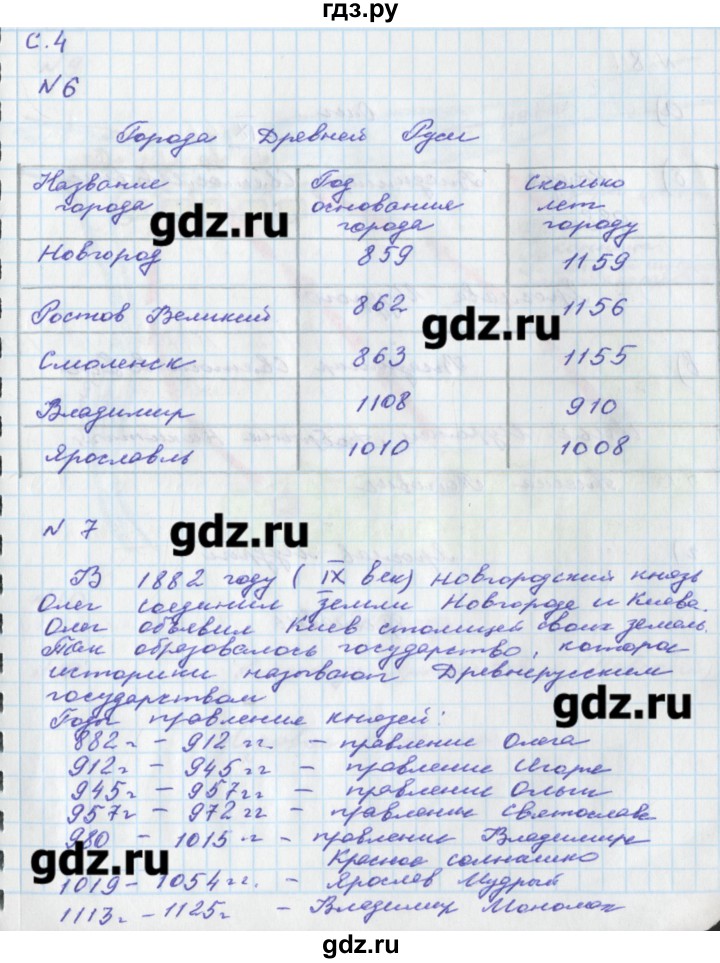 гдз.ру
с. 4
№6
Города Древней Руси
Название города | Год основания города | Сколько лет городу
Новгород 859 1159
Ростов Великий 862 1156
Смоленск 863 1155
Владимир 1108 910
Ярославль 1010 1008
gdz.ru
gdz.ru
№ 7
gdz.ru
В 1882 году (IX век) Новгородский князь
Олег соединил земли Новгороде и Киева.
Олег объявил Киев столицей своих земель.
Так образовалось государство, которое
историки называют Древнерусским
государством
gdz.ru
Годы правление князей:
882г - 912 гг. - правление Олега
912г - 945 гг - правление Игоре
945г - 957 гг - правление Ольги
957г - 972 гг - правление Святослава
980 - 1015 г - правление Владимире
Красное солнышко
gdz.ru
1019 - 1054 гг. - Ярослав Мудрый
1113г - 1125г - Владимир Мономах
gdz.ru